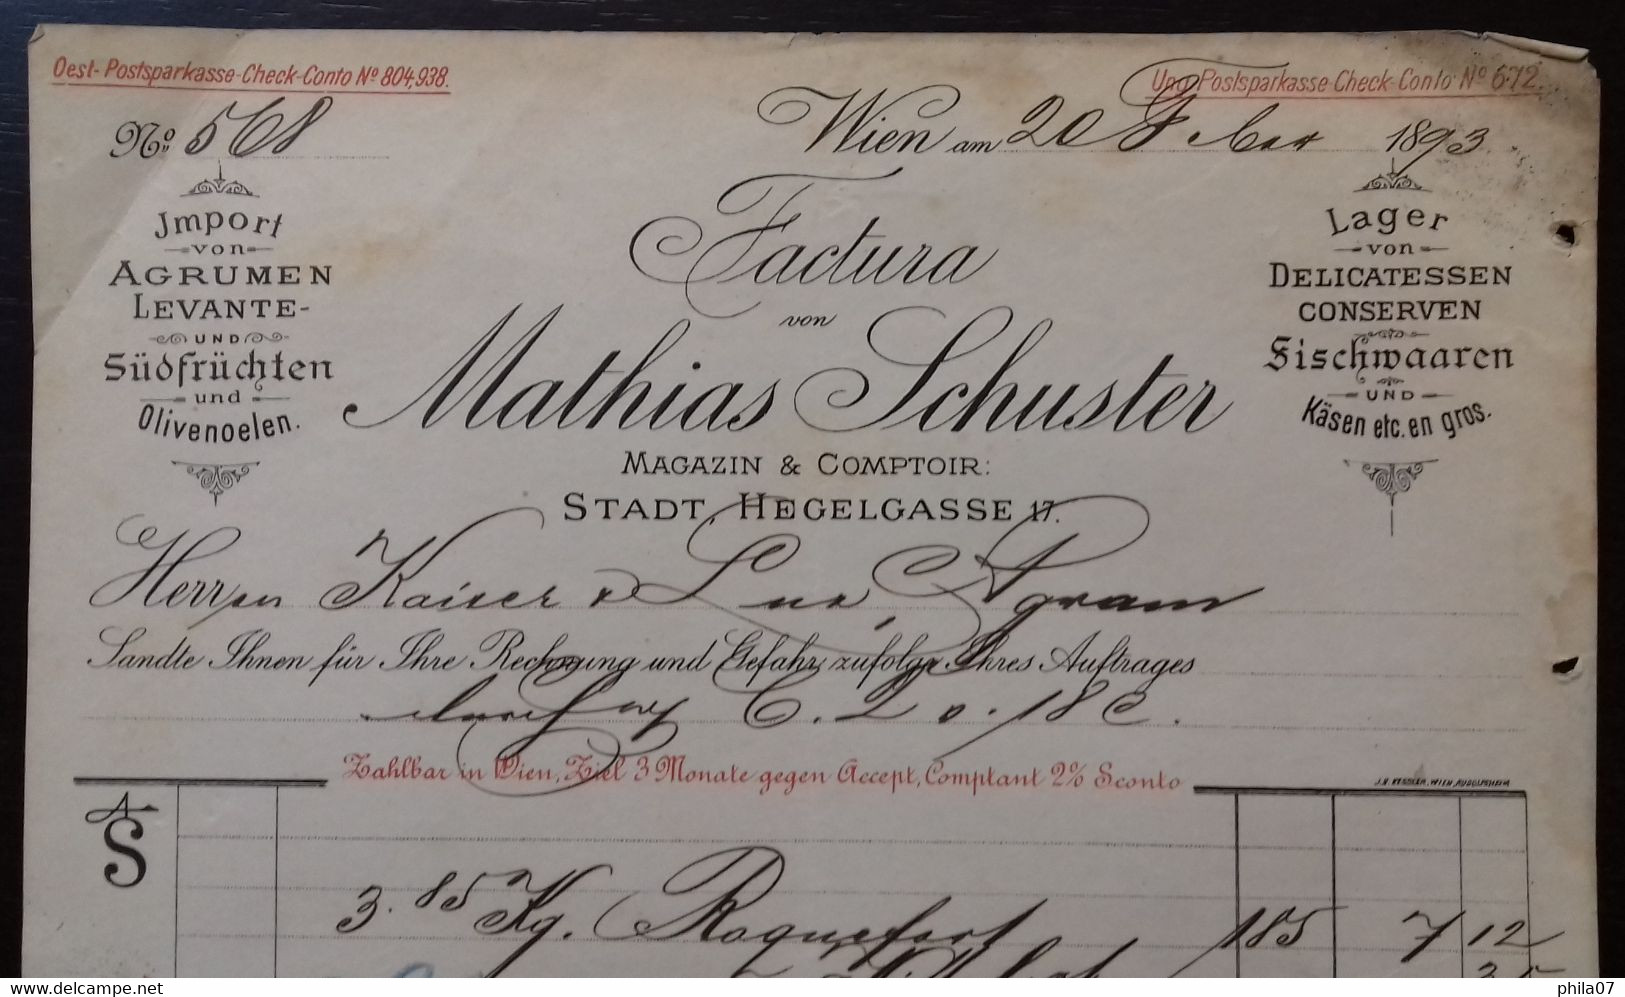 Oest. Postsparkasse-Check-Conto No 804,938.
Ung. Postsparkasse-Check-Conto No 672.
No. 568
Wien am 20 Feber 1893
Import
von
AGRUMEN
LEVANTE-
UND
Südfrüchten
und
Olivenoelen.
Factura
von
Mathias Schuster
MAGAZIN & COMPTOIR:
STADT, HEGELGASSE 17.
Lager
von
DELICATESSEN
CONSERVEN
Fischwaaren
UND
Käsen etc. en gros.
Herrn Kaiser & Lux, Agram
Sandte Ihnen für Ihre Rechnung und Gefahr, zufolge Ihres Auftrages
Zahlbar in Wien, Ziel 3 Monate gegen Accept, Comptant 2% Sconto
J.B. KESSLER, WIEN, RUDOLFSHEIM
A
S
3.85 Kg. Roquefort 185 7 12
35
phila07